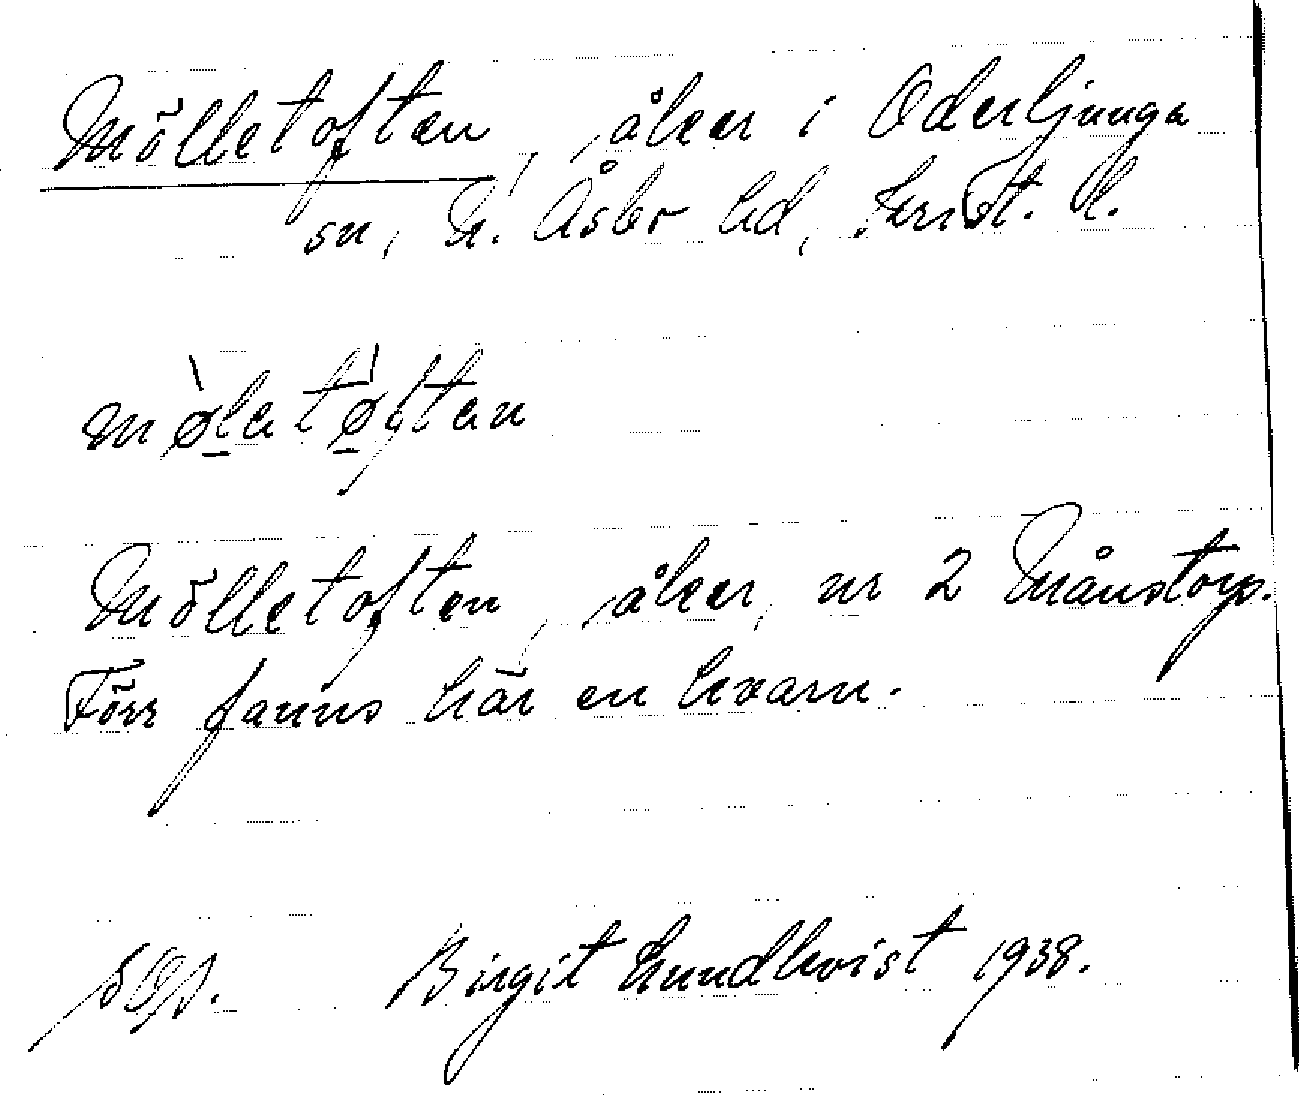 Mölletoften, åker i Oderljunga
sn, N. Åsbo hd, Krist. l.
møletøften
Mölletoften, åker, nr 2 Månstorp.
Förr fanns här en kvarn.
Birgit Lundkvist 1938.